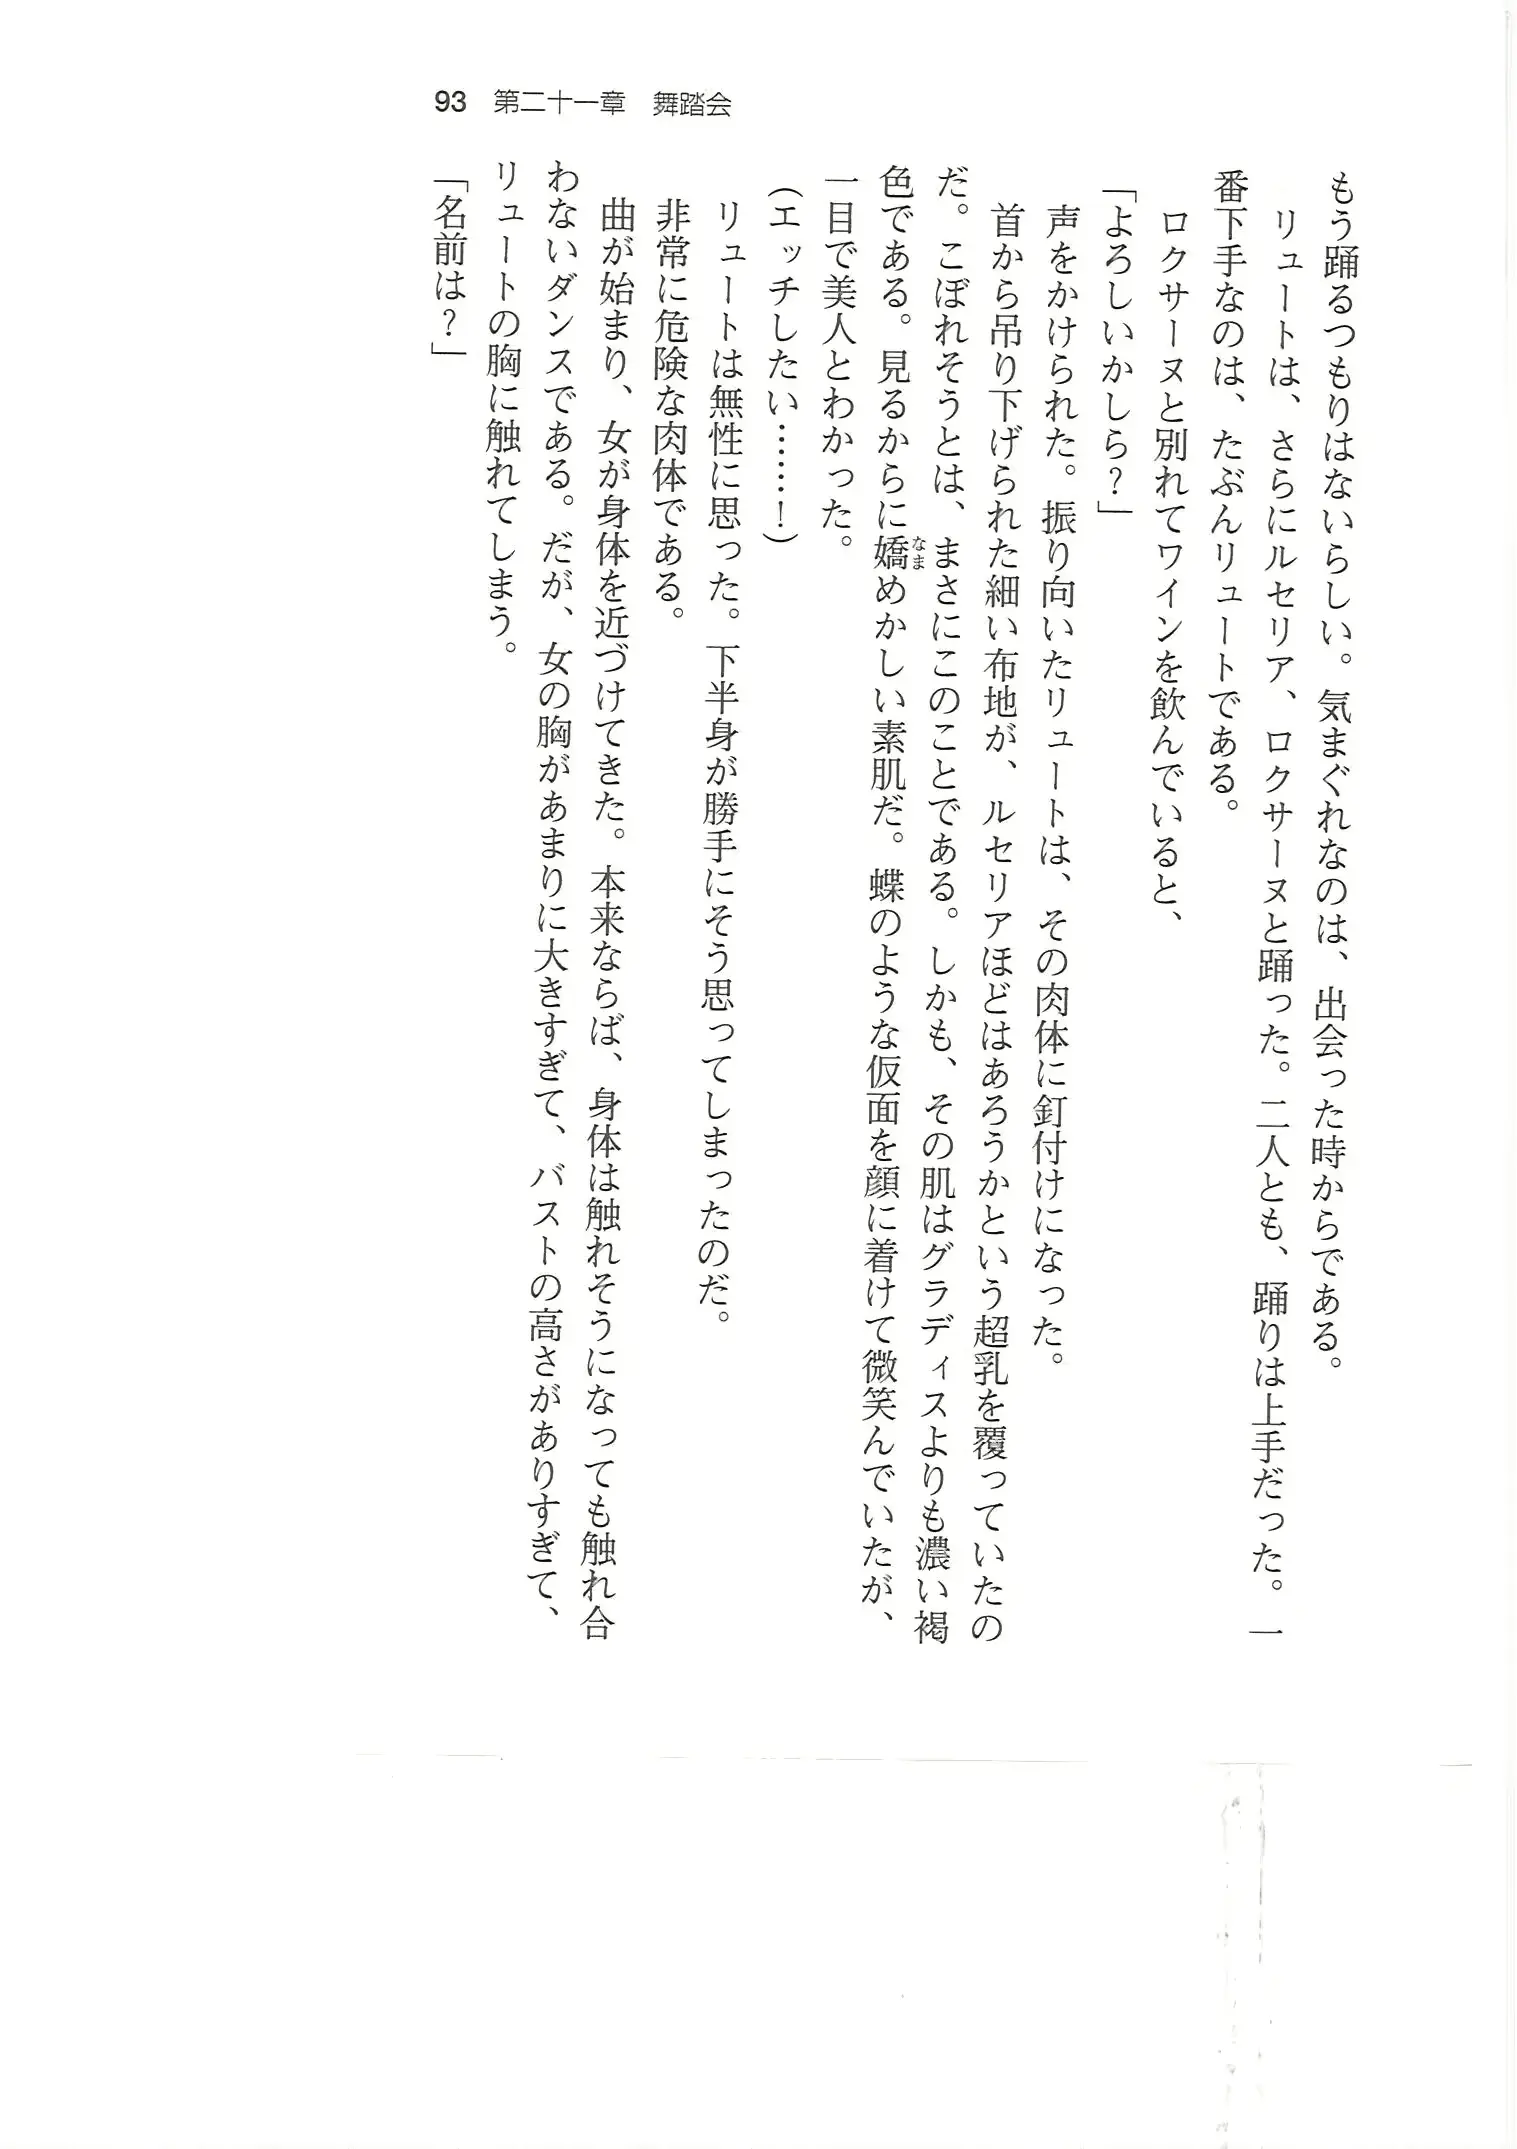 93　第二十一章　舞踏会
もう踊るつもりはないらしい。気まぐれなのは、出会った時からである。
　リュートは、さらにルセリア、ロクサーヌと踊った。二人とも、踊りは上手だった。一
番下手なのは、たぶんリュートである。
　ロクサーヌと別れてワインを飲んでいると、
「よろしいかしら？」
　声をかけられた。振り向いたリュートは、その肉体に釘付けになった。
　首から吊り下げられた細い布地が、ルセリアほどはあろうかという超乳を覆っていたの
だ。こぼれそうとは、まさにこのことである。しかも、その肌はグラディスよりも濃い褐
色である。見るからに嬌めかしい素肌だ。蝶のような仮面を顔に着けて微笑んでいたが、
なま
一目で美人とわかった。
（エッチしたい……！）
　リュートは無性に思った。下半身が勝手にそう思ってしまったのだ。
　非常に危険な肉体である。
　曲が始まり、女が身体を近づけてきた。本来ならば、身体は触れそうになっても触れ合
わないダンスである。だが、女の胸があまりに大きすぎて、バストの高さがありすぎて、
リュートの胸に触れてしまう。
「名前は？」